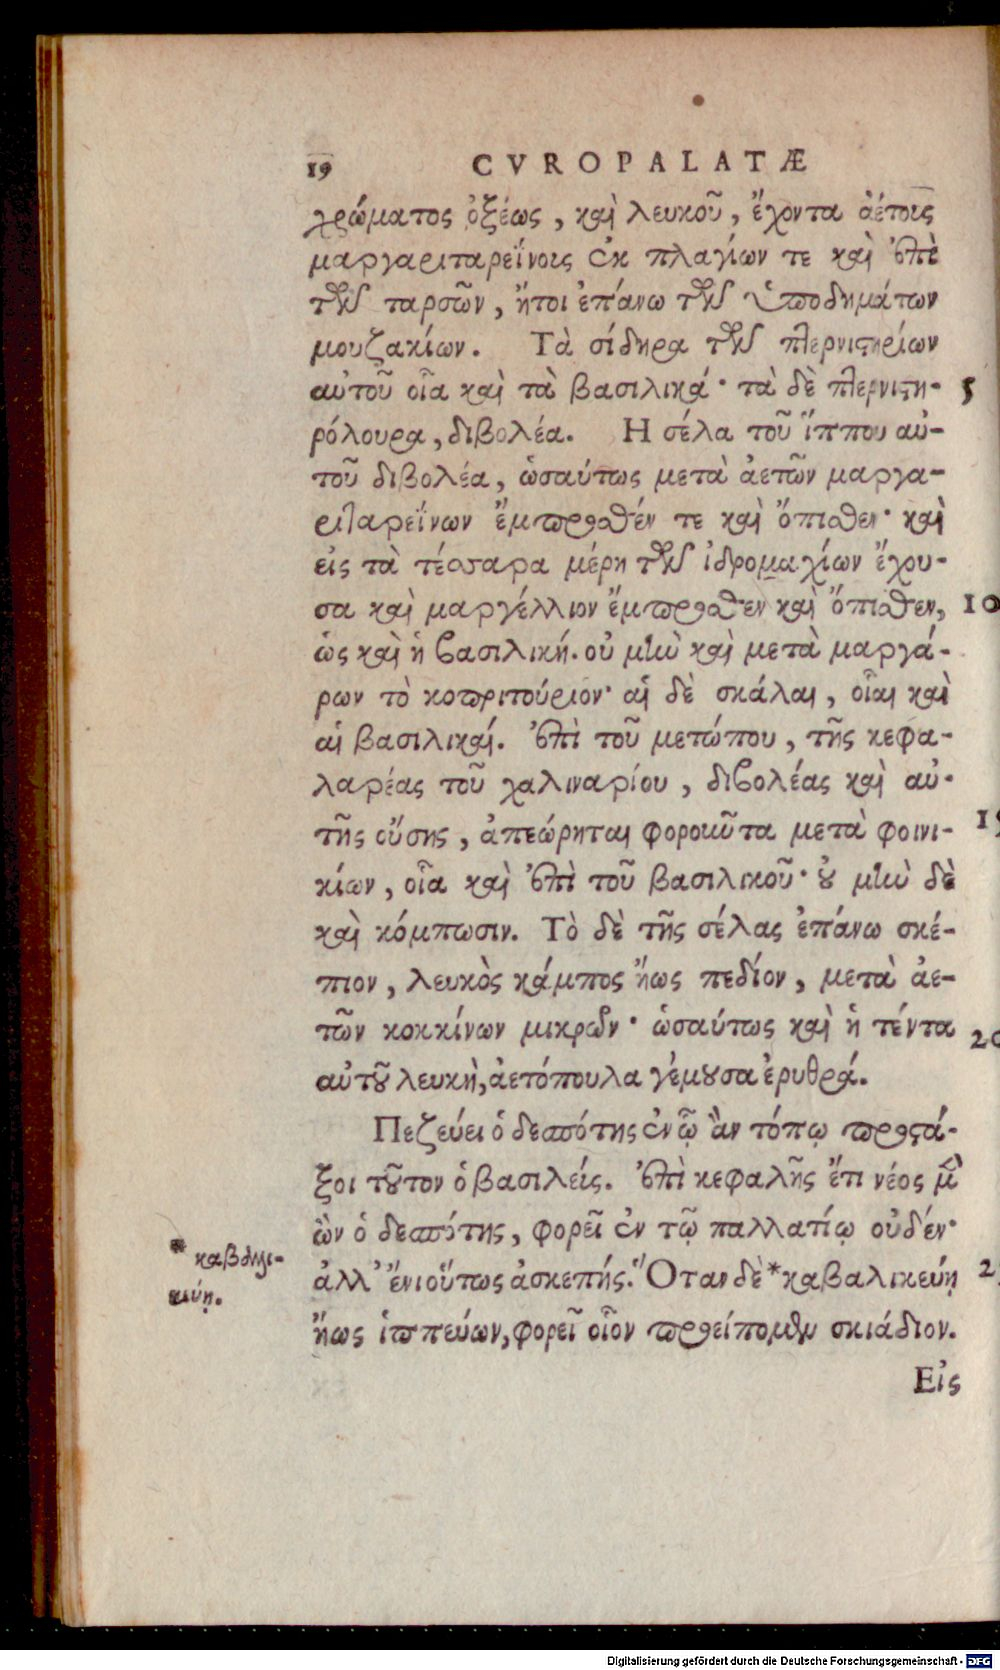 19 CVROPALATÆ
χρώματος ὀξέως, καὶ λευκοῦ, ἔχοντα ἀέτοις
μαργαριταρεΐνοις ἐκ πλαγίων τε καὶ ἐπὶ
τῶν ταρσῶν, ἤτοι ἐπάνω τῶν ὑποδημάτων
μουζακίων. Τὰ σίδηρα τῶν πτερνιστηρίων
αὐτοῦ οἷα καὶ τὰ βασιλικά· τὰ δὲ πτερνιστη- 5
ρόλουρα, διβολέα. Η σέλα τοῦ ἵππου αὐ-
τοῦ διβολέα, ὡσαύτως μετὰ ἀετῶν μαργα-
ριταρεΐνων ἔμπροσθέν τε καὶ ὄπισθεν· καὶ
εἰς τὰ τέσσαρα μέρη τῶν ἱδρομαχίων ἔχου-
σα καὶ μαργέλλιον ἔμπροσθεν καὶ ὄπισθεν, 10
ὡς καὶ ἡ βασιλική. οὐ μὴν καὶ μετὰ μαργά-
ρων τὸ κοπριτούριον· αἱ δὲ σκάλαι, οἷαι καὶ
αἱ βασιλικαί. ἐπὶ τοῦ μετώπου, τῆς κεφα-
λαρέας τοῦ χαλιναρίου, διβολέας καὶ αὐ-
τῆς οὔσης, ἀπεώρηται φορουῦτα μετὰ φοινι- 15
κίων, οἷα καὶ ἐπὶ τοῦ βασιλικοῦ· οὐ μὴν δὲ
καὶ κόμπωσιν. Τὸ δὲ τῆς σέλας ἐπάνω σκέ-
πιον, λευκὸς κάμπος ἤως πεδίον, μετὰ ἀε-
τῶν κοκκίνων μικρῶν· ὡσαύτως καὶ ἡ τέντα 20
αὐτοῦ λευκὴ, ἀετόπουλα γέμουσα ἐρυθρά.
Πεζεύει ὁ δεσπότης ἐν ᾧ ἂν τόπῳ προστά-
ξοι τοῦτον ὁ βασιλείς. ἐπὶ κεφαλῆς ἔτι νέος μὲν
ὢν ὁ δεσπότης, φορεῖ ἐν τῷ παλλατίῳ οὐδέν·
ἀλλ' ἔνιούπως ἀσκεπής. Ὅταν δὲ *καβαλικεύῃ 2
ἤως ἱππεύων, φορεῖ οἷον προείπομεν σκιάδιον.
Εἰς
Digitalisierung gefördert durch die Deutsche Forschungsgemeinschaft - DFG